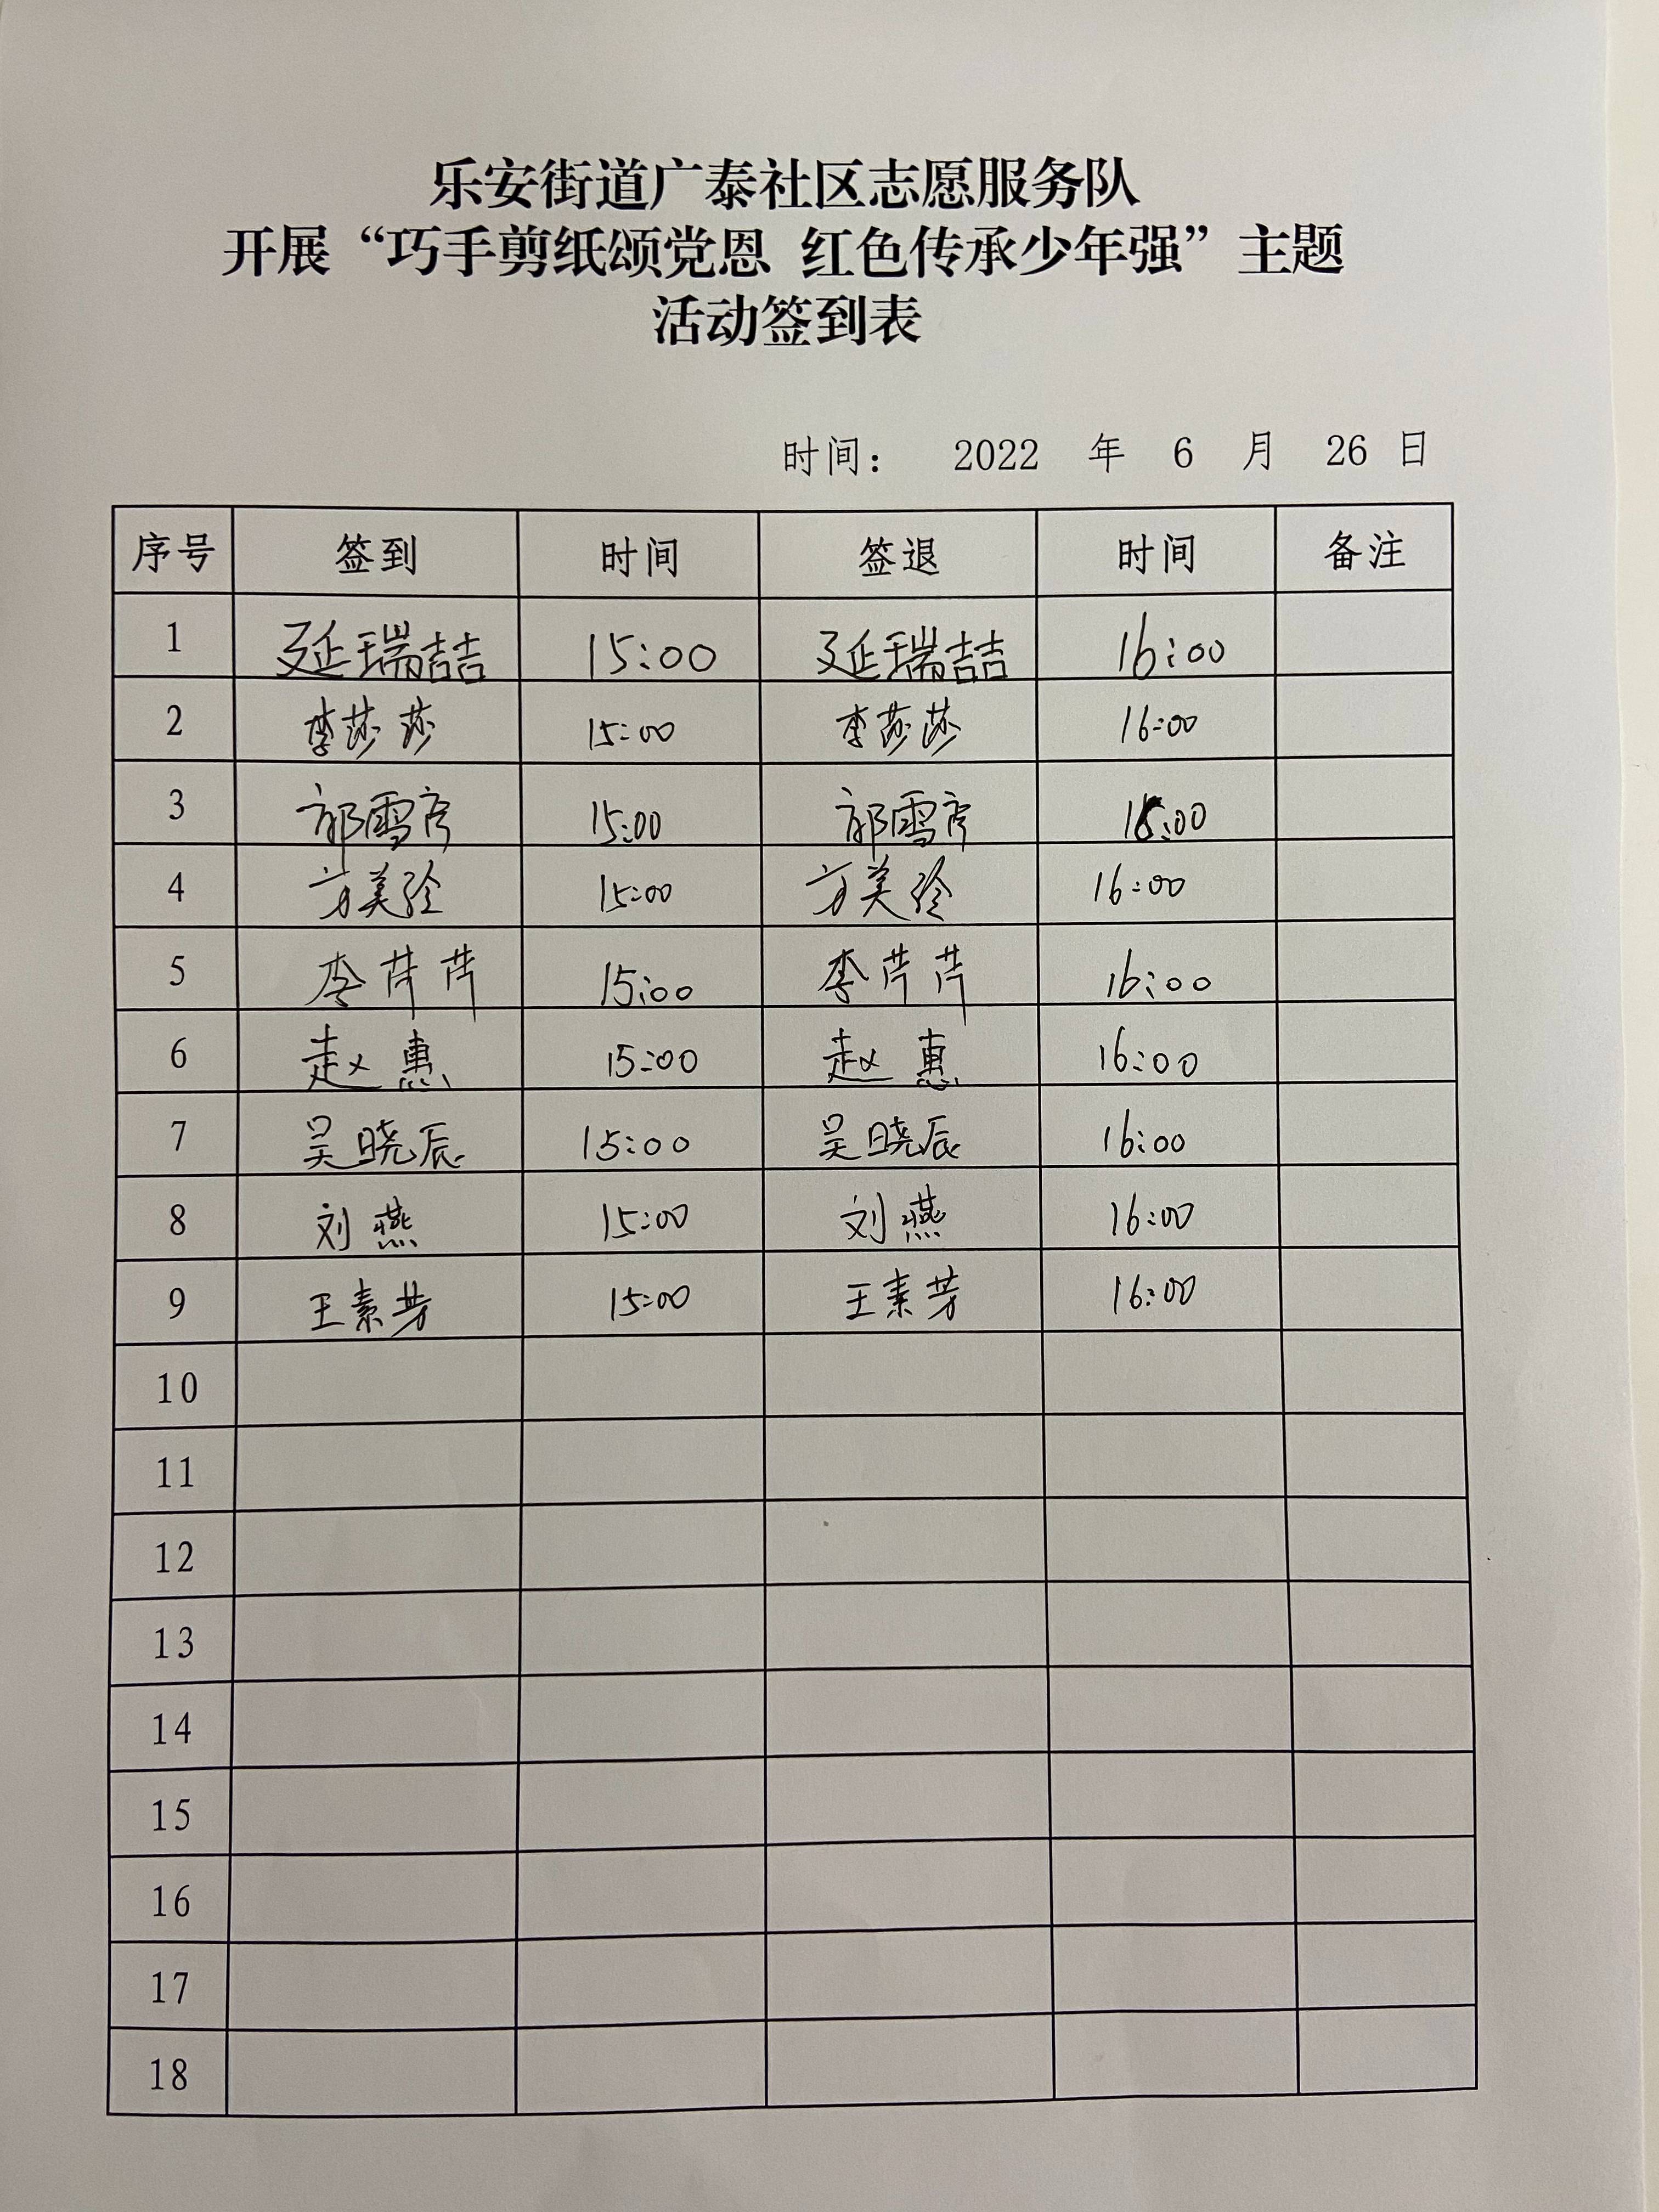 乐安街道广泰社区志愿服务队
开展“巧手剪纸颂党恩 红色传承少年强”主题
活动签到表
时间： 2022 年 6 月 26 日
序号 签到 时间 签退 时间 备注
1 延瑞喆 15:00 延瑞喆 16:00
2 李莎莎 15:00 李莎莎 16:00
3 郭雪 15:00 郭雪 :00
4 方美玲 15:00 方美玲 16:00
5 李芹芹 15:00 李芹芹 16:00
6 赵惠 15:00 赵惠 16:00
7 吴晓辰 15:00 吴晓辰 16:00
8 刘燕 15:00 刘燕 16:00
9 王素芳 15:00 王素芳 16:00
10
11
12
13
14
15
16
17
18